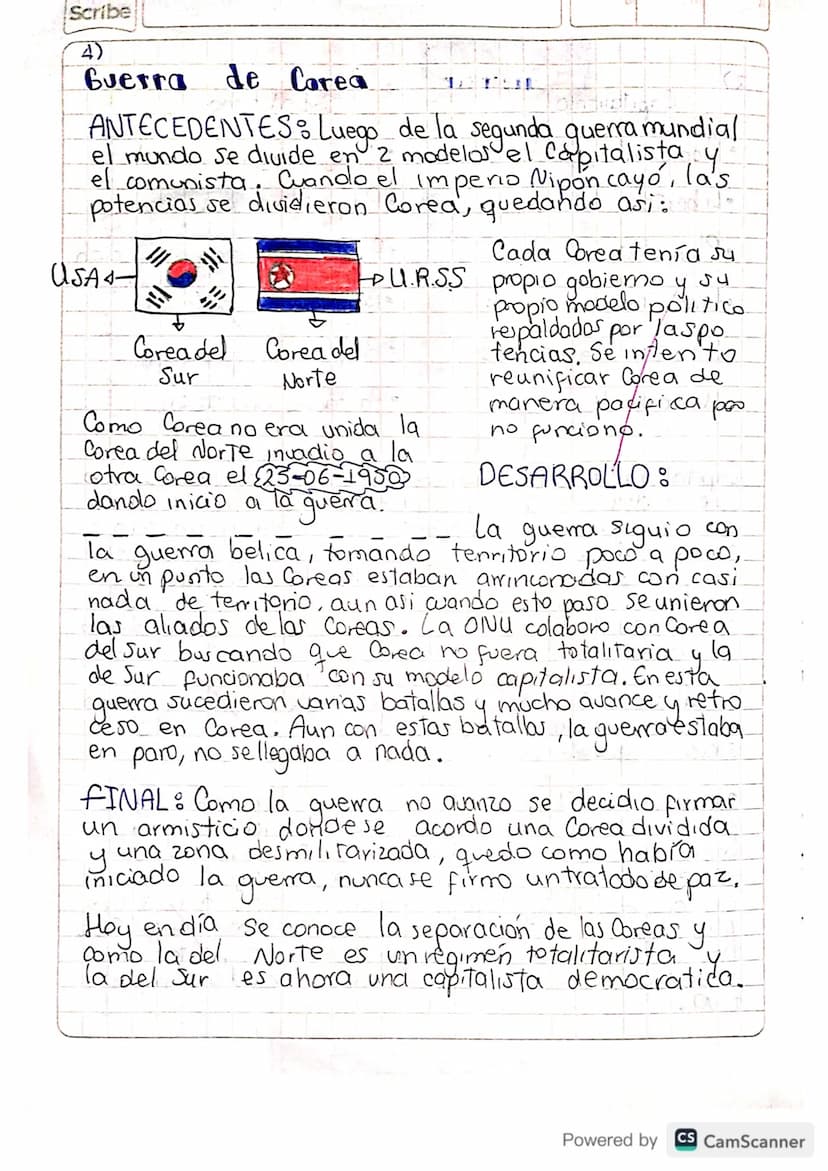 Scribe
4)
Guerra de Corea
ANTECEDENTES: Luego de la segunda guerra mundial
el mundo se divide en 2 modelos el Capitalista y
el comunista. Cuando el imperio Nipón cayó, las
potencias se dividieron Corea, quedando asi:
USA
U.R.S.S
Corea del
Sur
Corea del
Norte
Cada Corea tenía su
propio gobierno y su
propio modelo politico
respaldados por las po
tencias. Se intento
reunificar Corea de
manera pacifica pero
no funciono.
Como Corea no era unida la
Corea del Norte invadio a la
otra Corea el 25-06-1950
dando inicio a la guerra.
DESARROLLO:
La guerra siguio con
la guerra belica, tomando territorio poco a poco,
en un punto las Coreas estaban arrinconadas con casi
nada de territorio, aun asi cuando esto paso se unieron
las aliados de las Coreas. La ONU colaboro con Corea
del Sur buscando que Corea no fuera totalitaria y la
de Sur funcionaba con su modelo capitalista. En esta
guerra sucedieron varias batallas y mucho avance y retro
ceso en Corea. Aun con estas batallas, la guerra estaba
en paro, no se llegaba a nada.
FINAL: Como la guerra no avanzo se decidio firmar
un armisticio donde se acordo una Corea dividida
y una zona desmilitarizada, quedo como había
iniciado la guerra, nunca se firmo un tratado de paz.
Hoy en día se conoce la separación de las Coreas y
como la del Norte es un régimen totalitarista y
la del Sur es ahora una capitalista democratica.
Powered by CS CamScanner